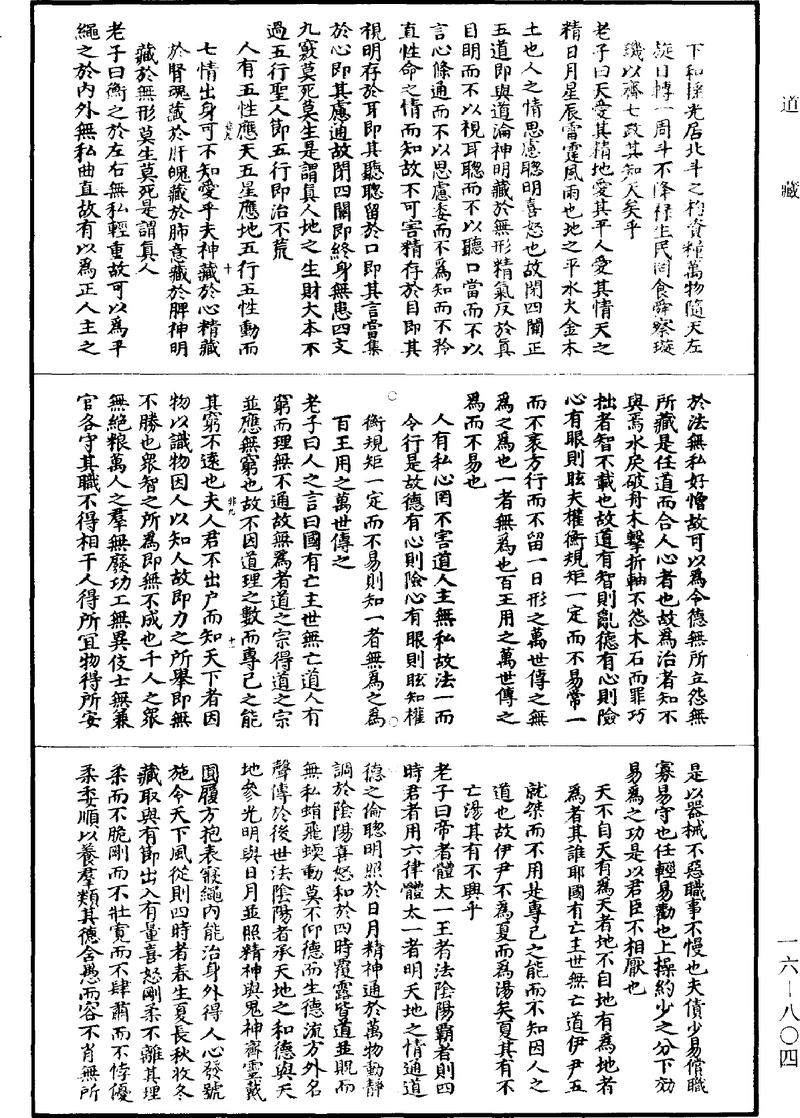 道藏
下和揉光居北斗之杓資糧萬物隨天左
旋日轉一周斗不降祿生民罔食舜察璇
璣以齊七政其知天矣乎
老子曰天愛其精地愛其平人愛其情天之
精日月星辰雷霆風雨也地之平水火金木
土也人之情思慮聰明喜怒也故閉四關正
五道即與道淪神明藏於無形精氣反於真
目明而不以視耳聰而不以聽口當而不以
言心條通而不以思慮委而不爲知而不矜
直性命之情而知故不可害精存於目即其
視明存於耳即其聽聰留於口即其言當集
於心即其慮通故閉四關即終身無患四支
九竅莫死莫生是謂真人地之生財大本不
過五行聖人節五行即治不荒
人有五性應天五星應地五行五性動而
七情出身可不知愛乎夫神藏於心精藏
於腎魂藏於肝魄藏於肺意藏於脾神明
藏於無形莫生莫死是謂真人
老子曰衡之於左右無私輕重故可以爲平
繩之於內外無私曲直故有以爲正人主之
於法無私好憎故可以爲令德無所立怨無
所藏是任道而合人心者也故爲治者知不
與焉水戾破舟木擊折軸不怨木石而罪巧
拙者智不載也故道有智則亂德有心則險
心有眼則眩夫權衡規矩一定而不易常一
而不衺方行而不留一日形之萬世傳之無
爲之爲也一者無爲也百王用之萬世傳之
爲而不易也
人有私心罔不害道人主無私故法一而
令行是故德有心則險心有眼則眩知權
衡規矩一定而不易則知一者無爲之爲
百王用之萬世傳之
老子曰人之言曰國有亡主世無亡道人有
窮而理無不通故無爲者道之宗得道之宗
並應無窮也故不因道理之數而專己之能
其窮不遠也夫人君不出户而知天下者因
物以識物因人以知人故即力之所舉即無
不勝也衆智之所爲即無不成也千人之衆
無絕粮萬人之羣無廢功工無異伎士無兼
官各守其職不得相干人得所宜物得所安
是以器械不惡職事不慢也夫債少易償職
寡易守也任輕易勸也上操約少之分下効
易爲之功是以君臣不相厭也
天不自天有爲天者地不自地有爲地者
爲者其誰耶國有亡主世無亡道伊尹五
就桀而不用是專己之能而不知因人之
道也故伊尹不爲夏而爲湯矣夏其有不
亡湯其有不興乎
老子曰帝者體太一王者法陰陽霸者則四
時君者用六律體太一者明天地之情通道
德之倫聰明照於日月精神通於萬物動靜
調於陰陽喜怒和於四時覆露皆道並貺而
無私蜎飛蝡動莫不仰德而生德流方外名
聲傳於後世法陰陽者承天地之和德與天
地參光明與日月並照精神與鬼神齊靈戴
圓履方抱表寢繩內能治身外得人心發號
施令天下風從則四時者春生夏長秋收冬
藏取與有節出入有量喜怒剛柔不離其理
柔而不脆剛而不壯寬而不肆肅而不悖優
柔委順以養羣類其德含愚而容不肖無所
一六—八〇四